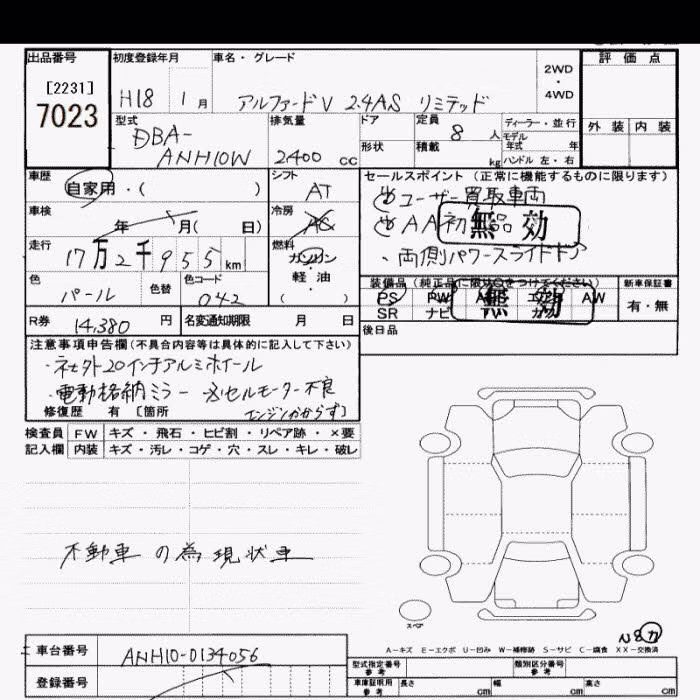 出品番号 初度登録年月 車名・グレード 評価点
[2231] 2WD
・
7023 H18 1月 アルファードV 2.4AS リミテッド 4WD
型式 排気量 ドア 定員 ディーラー・並行 外装 内装
DBA- 8人 モデル
年式 年
ANH10W 2400 cc 形状 積載 kg ハンドル 左・右
車歴 シフト セールスポイント (正常に機能するものに限ります)
自家用・( ) AT ユーザー買取車両
車検 冷房 AA初 品
年 月( 日) AC 無効
走行 燃料 ・両側パワースライドドア
17万2千955km ガソリン
色 色替 色コード 軽・油 装備品 新車保証書
パール 042 ( ) PS PW AW 有・無
無効
SR ナビ TV
R券 14,380円 名変通知期限 月 日 後日品
注意事項申告欄(不具合内容等は具体的に記入して下さい)
・社外20インチアルミホイール
・電動格納ミラー ・セルモーター不良
修復歴 有 [箇所 エンジンかからず]
検査員 FW キズ・飛石・ヒビ割・リペア跡・×要
記入欄 内装 キズ・汚レ・コゲ・穴・スレ・キレ・破レ
不動車の為現状車
スペア
A-キズ E-エクボ U-凹み W-補修跡 S-サビ C-腐食 XX-交換済
車台番号 ANH10-0134056
型式指定番号 参考 類別区分番号 参考
登録番号
車庫証明用 参考 長さ cm 幅 cm 高さ cm